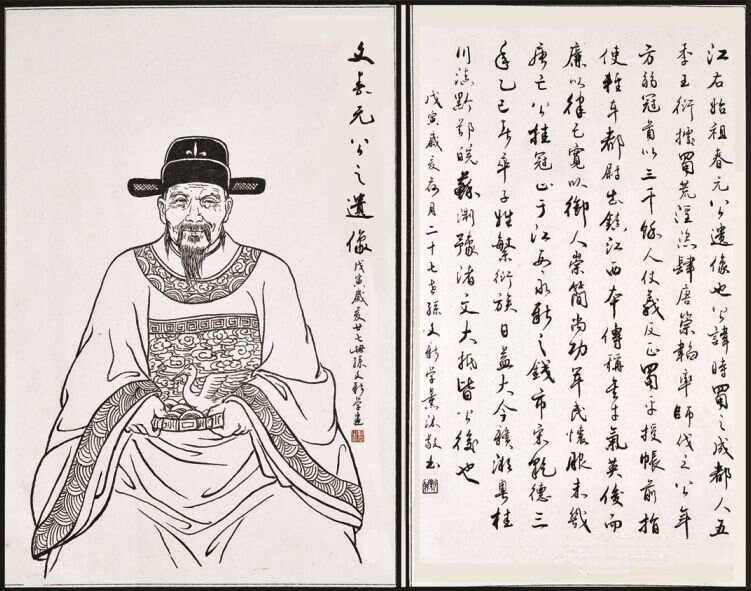 文春元公之遺像
戊寅歲廿七世孫文新學畫
江右始祖春元公遺像也公諱時蜀之成都人五
季王衍據蜀荒淫恣肆唐崇韜率師伐之公年
方弱冠首以三千餘人仗義反正蜀平授帳前指
使輕車都尉出鎮江西本傳稱其才氣英俊而
廉以律己寬以御人崇簡尚功軍民懷服未幾
唐亡公挂冠止于江西永新之錢市宋乾德三
年乙巳率子姓繁衍族日益大今贛湘粵桂
川滇黔鄂皖蘇浙豫諸文大抵皆公後也
戊寅歲荷月二十七世孫文新學薰沐敬書